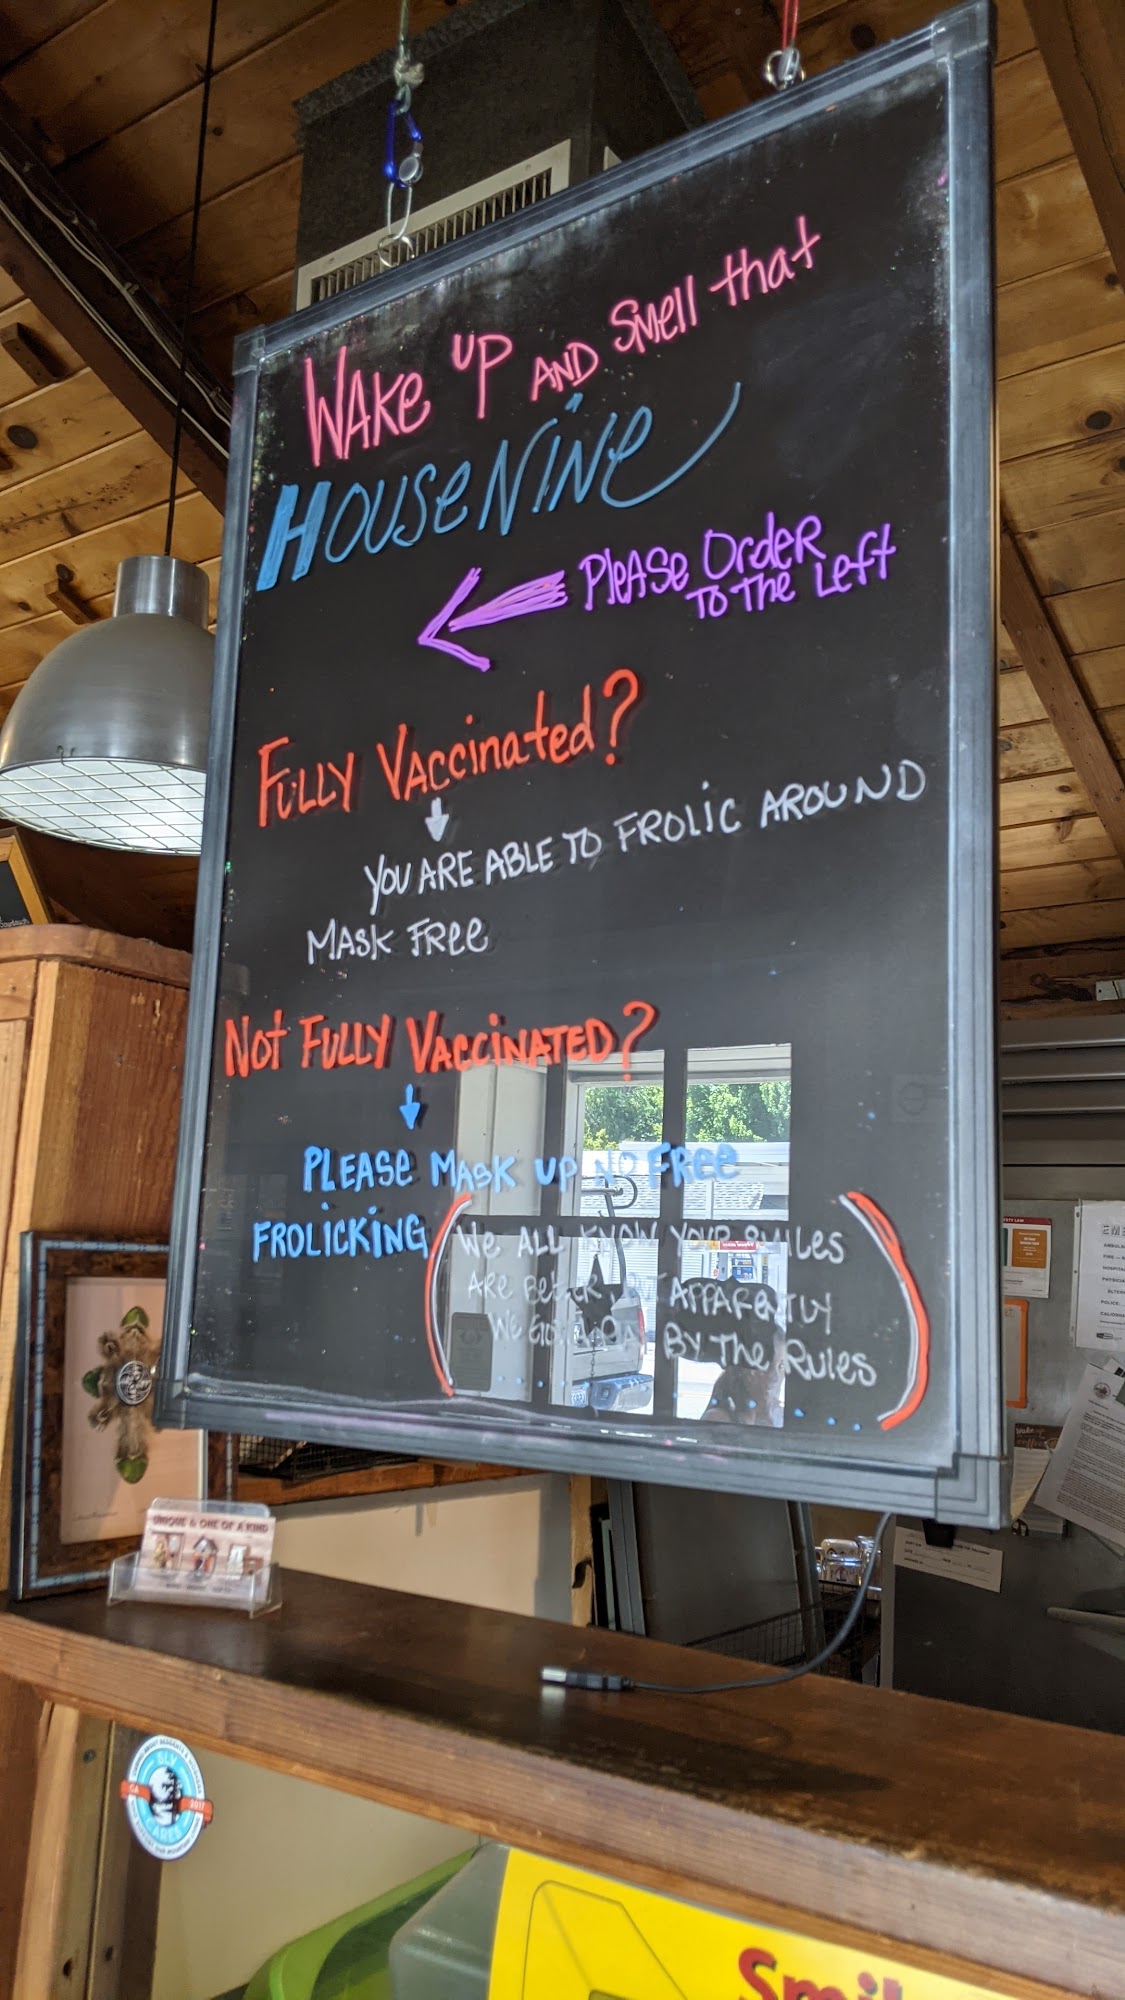 Wake up and smell that
House Nine
Please Order
to the Left
Fully Vaccinated?
You are able to frolic around
mask free
Not Fully Vaccinated?
Please mask up no free
frolicking
(We all know your smiles
are better, but apparently
we gotta play by the rules)
Unique & One of a Kind
SLV
CARES
CA
2017
Smil